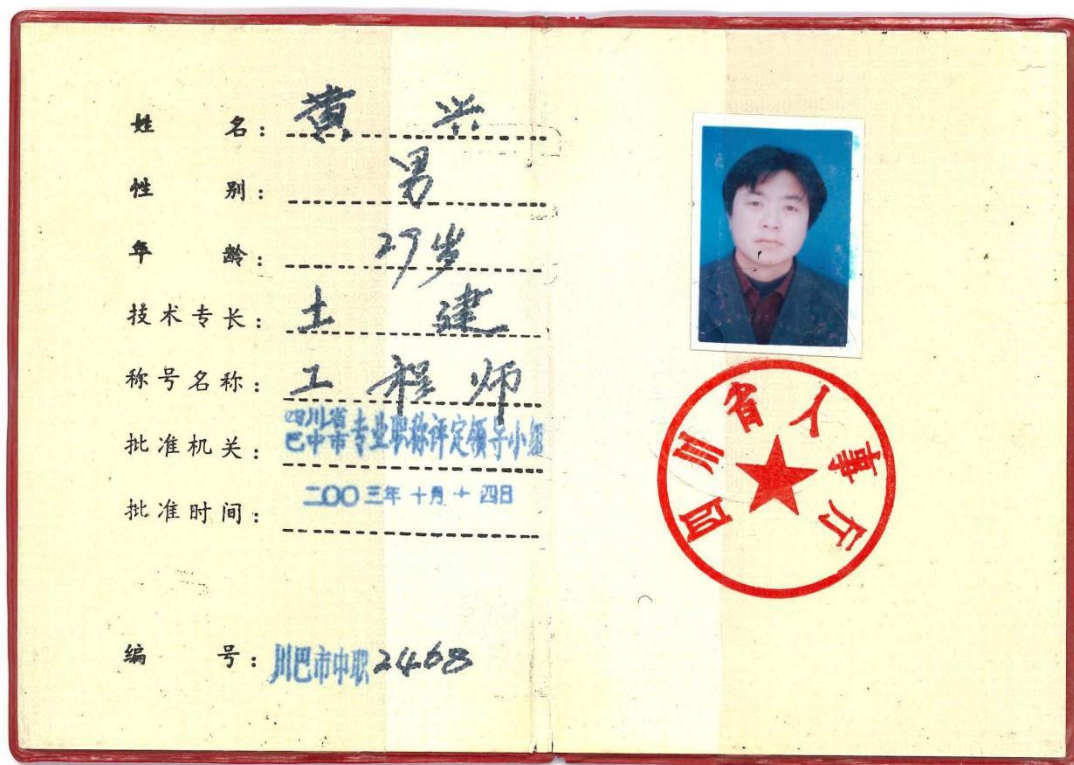 姓 名：黄 兴
性 别：男
年 龄：27岁
技术专长：土 建
称号名称：工 程 师
批准机关：四川省巴中市专业职称评定领导小组
批准时间：二〇〇三年十月十四日
编 号：川巴市中职2468
四川省人事厅